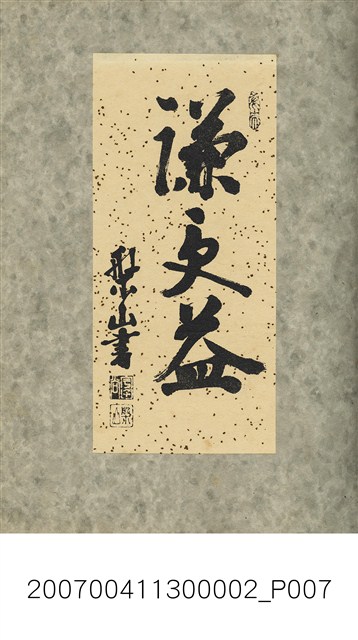 謙受益
山書
200700411300002_P007